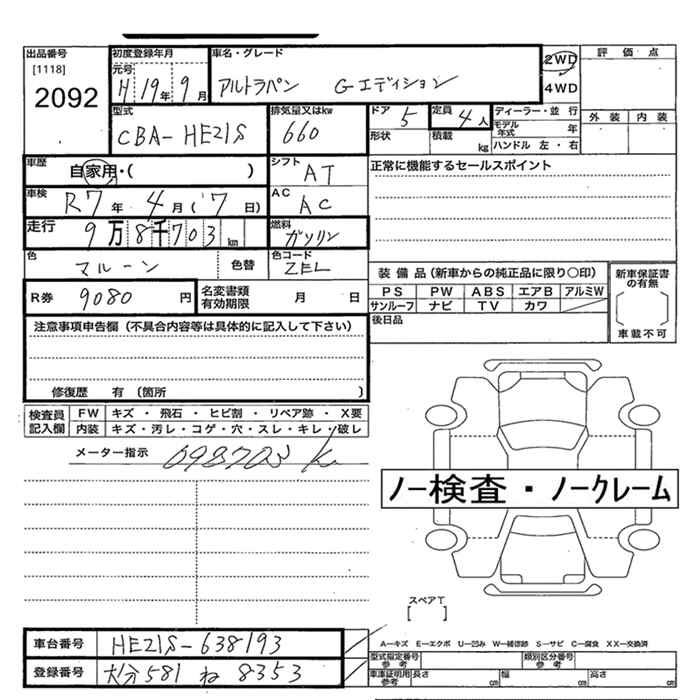 出品番号 初度登録年月 車名・グレード 評価点
[1118] 元号 2WD
2092 H 19年 9月 アルトラパン Gエディション 4WD
型式 排気量又はkw ドア 5 定員 4人 ディーラー・並行 外装 内装
CBA-HE21S 660 形状 積載 kg モデル年式 年
ハンドル 左・右
車歴 自家用・( ) シフト AT 正常に機能するセールスポイント
車検 R7年 4月(7日) AC AC
走行 9万8千703km 燃料 ガソリン
色 マルーン 色替 色コード ZEL
装備品(新車からの純正品に限り○印) 新車保証書の有無
R券 9080円 名変書類有効期限 月 日 PS PW ABS エアB アルミW
サンルーフ ナビ TV カワ 車載不可
注意事項申告欄(不具合内容等は具体的に記入して下さい) 後日品
修復歴 有(箇所 )
検査員記入欄 FW キズ・飛石・ヒビ割・リペア跡・X要
内装 キズ・汚レ・コゲ・穴・スレ・キレ・破レ
メーター指示 098703 km
ノー検査・ノークレーム
スペアT
[ ]
車台番号 HE21S-638193 A-キズ E-エクボ U-凹み W-補修跡 S-サビ C-腐食 XX-交換済
型式指定番号参考 類別区分番号参考
登録番号 大分581 ね 8353 車庫証明用参考 長さ cm 幅 cm 高さ cm